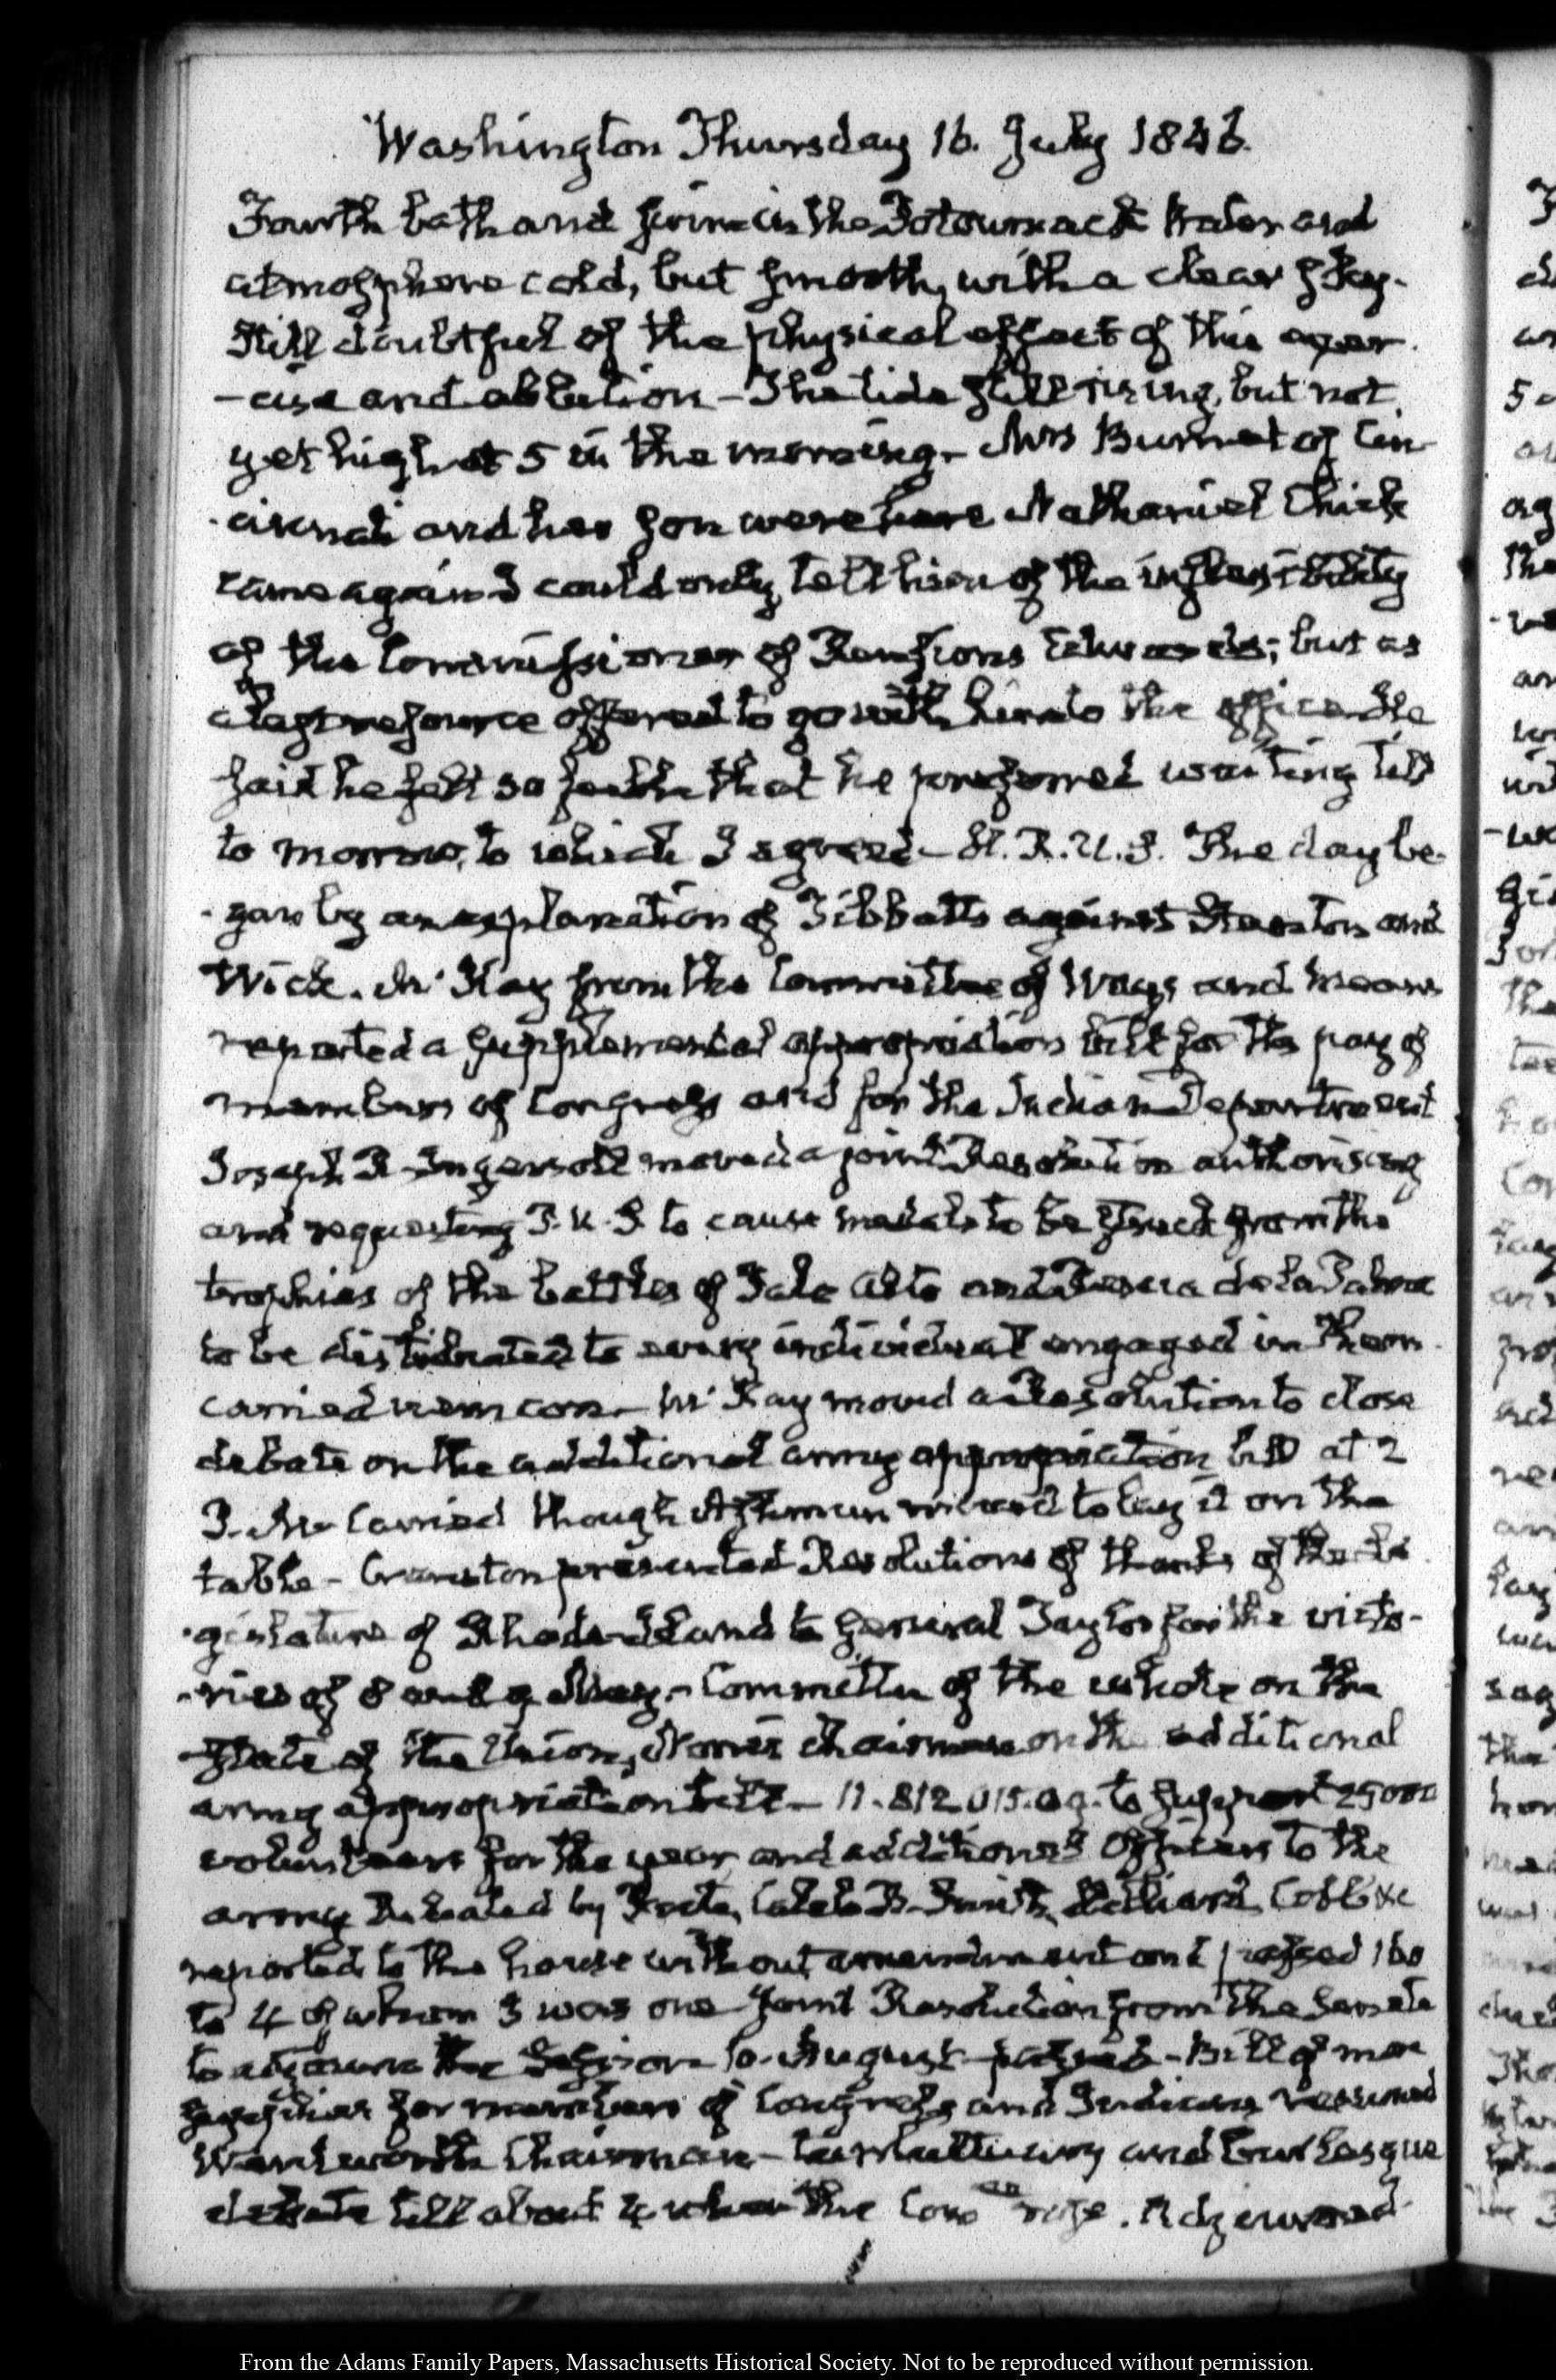 Washington Thursday 16. July 1846.
Fourth bath and swim in the Potowmack Water and
atmosphere cold, but smooth, with a clear sky.
Still doubtful of the physical effect of this exer
-cise and ablution – The tide still rising, but not
yet high at 5 in the morning. Mrs Burnet of Cin
-cinnati and her son were here Nathaniel Chick
came again I could only tell him of the inflexibility
of the Commissioner of Pensions Edwards; but as
a last resource offered to go with him to the office. He
said he felt so feeble that he preferred waiting till
to morrow, to which I agreed – H.R.U.S. The day be-
-gan by an explanation of Tibbatts against Stanton and
Wick. Mc Kay from the Committee of Ways and Means
reported a supplemental appropriation bill for the pay of
members of Congress and for the Indian Department
Joseph R. Ingersoll moved a joint Resolution authorising
and requesting P.U.S. to cause medals to be struck from the
trophies of the battles of Palo Alto and Resaca de la Palma
to be distributed to every individual engaged in them.
carried nem con – Mc Kay moved a Resolution to close
debate on the additional army appropriation bill at 2
P.M. Carried though Ashmun moved to lay it on the
table – Cranston presented Resolutions of thanks of the Le
-gislature of Rhode-Island to General Taylor for the victo-
-ries of 8 and 9 May – Committee of the whole on the
state of the Union, Norris chairman on the additional
army appropriation bill – 11.812 015.09. to support 25000
volunteers for the year and additional Officers to the
army Debated by Root, Caleb B. Smith, Cobb &c
reported to the house without amendment and passed 160
to 4 of whom 3 was one Joint Resolution from the Senate
to adjourn the Session 10. August passed – Bill of mon
supplies for members of Congress and Indians resumed
Wentworth Chairman – tumultuary and burlesque
debate till about 4 when the Com ee rose. Adjourned
From the Adams Family Papers, Massachusetts Historical Society. Not to be reproduced without permission.